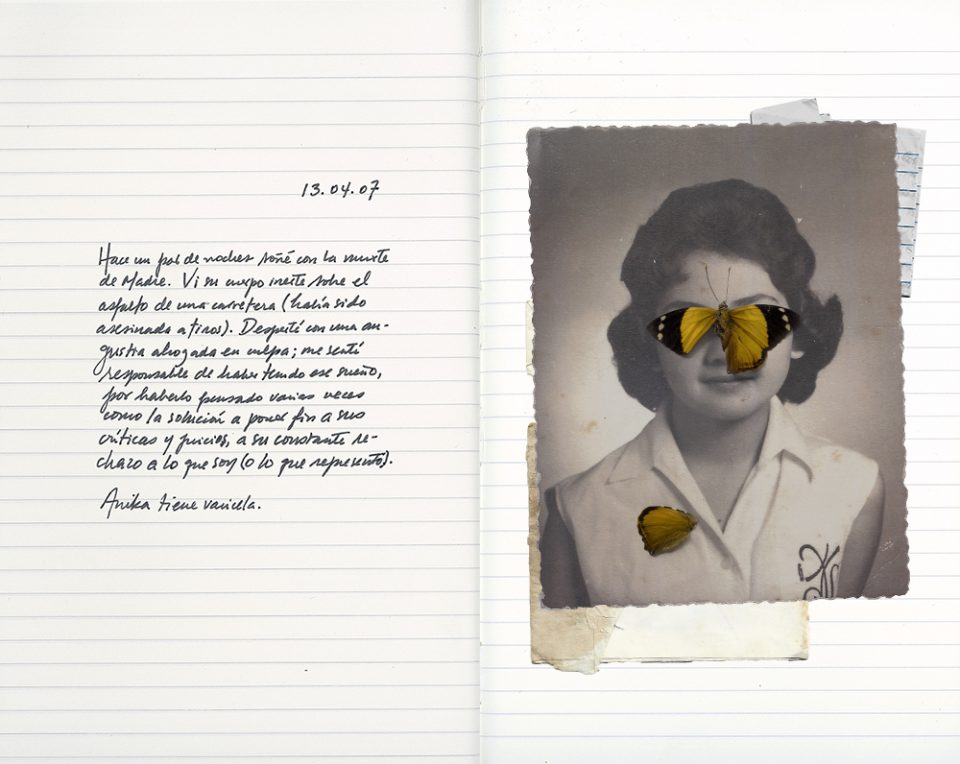 13.04.07
Hace un par de noches soñé con la muerte
de Madre. Vi su cuerpo inerte sobre el
asfalto de una carretera (había sido
asesinada a tiros). Desperté con una an-
gustia ahogada en culpa; me sentí
responsable de haber tenido ese sueño,
por haberlo pensado varias veces
como la solución a poner fin a sus
críticas y juicios, a su constante re-
chazo a lo que soy (o lo que represento).
Anika tiene varicela.